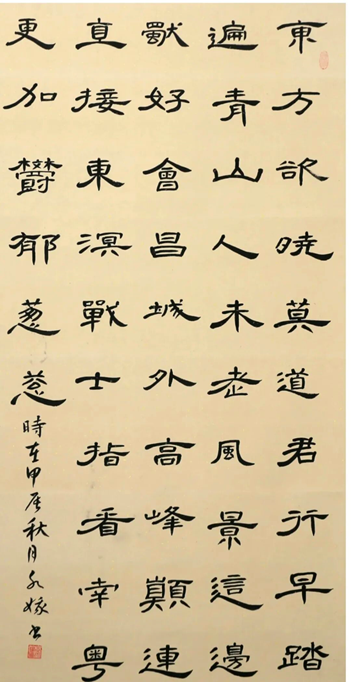 東方欲晓莫道君行早踏
遍青山人未老風景這邊
好會昌城外高峰顛連
直接東溟戰士指看南粤
更加欝郁葱葱
時在甲辰秋月